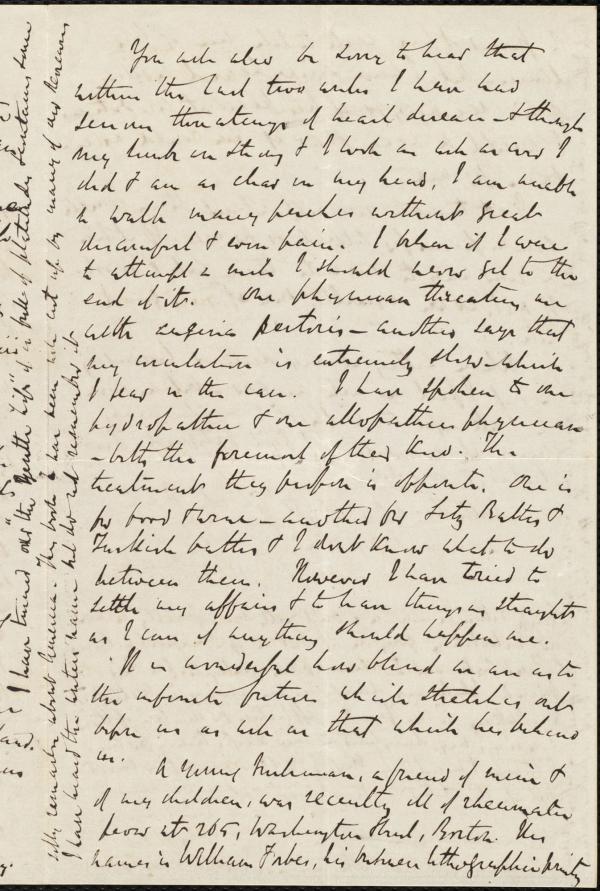 You will also be sorry to hear that
within the last two weeks I have had
serious threatenings of heart disease - & though
my limbs are strong & I look as well as ever I
did & am as clear in my head, I am unable
to walk many perches without great
discomfort & even pain. I believe if I were
to attempt a mile I should never get to the
end of it. One physician threatens me
with angina pectoris - another says that
my circulation is extremely slow - which
I fear is the case. I have spoken to one
hydropathic & one allopathic physician
- both the foremost of their kind. The
treatment they propose is opposite. One is
for food & wine - another for Sitz Baths &
Turkish baths & I don't know what to do
between them. However I have tried to
settle my affairs & to have things as straight
as I can if anything should happen me.
It is wonderful how blind we are as to
the infinite future which stretches out
before us as well as that which lies behind
us.
A young Irishman, a friend of mine &
of my children, was recently ill of rheumatic
fever at 265, Washington Street, Boston. His
name is William Forbes, his business lithographic printing
silly remarks about America. This book I have been well cut up by many of our Reviews
I have heard the writers name but do not remember it
I have turned over the "Gentle Life" it is full of platitudes &